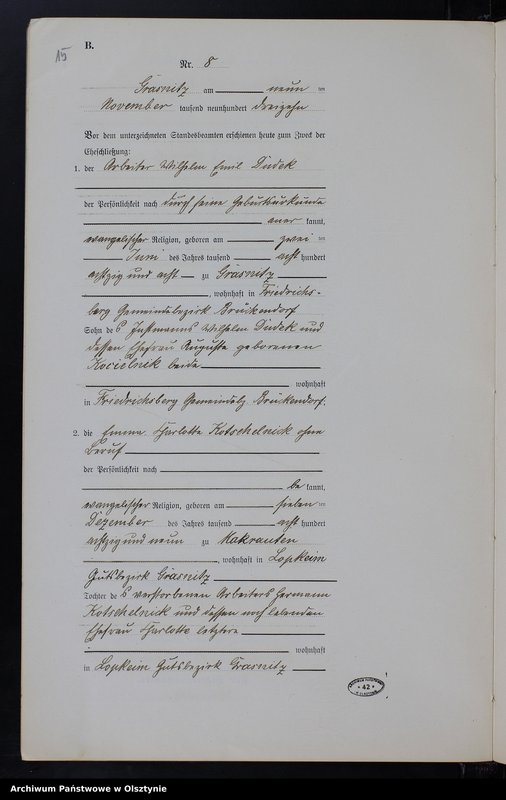 15
B.
Nr. 8
Grasnitz am neun ten
November tausend neunhundert dreizehn
Vor dem unterzeichneten Standesbeamten erschienen heute zum Zweck der
Eheschließung:
1. der Arbeiter Wilhelm Emil Dudek
der Persönlichkeit nach durch seine Geburtsurkunde
aner kannt,
evangelischer Religion, geboren am zwei ten
Juni des Jahres tausend acht hundert
achtzig und acht zu Grasnitz
, wohnhaft in Friedrichs-
berg Gemeindebezirk Brückendorf
Sohn des Instmanns Wilhelm Dudek und
dessen Ehefrau Auguste geborenen
Kocielnik beide
wohnhaft
in Friedrichsberg Gemeindebz. Brückendorf.
2. die Emma Charlotte Kotschelnick ohne
Beruf
der Persönlichkeit nach
be kannt,
evangelischer Religion, geboren am sieben ten
Dezember des Jahres tausend acht hundert
achtzig und neun zu Makrauten
, wohnhaft in Lopkeim
Gutsbezirk Grasnitz
Tochter des verstorbenen Arbeiters Hermann
Kotschelnick und dessen noch lebenden
Ehefrau Charlotte letztere
wohnhaft
in Lopkeim Gutsbezirk Grasnitz
42
Archiwum Państwowe w Olsztynie